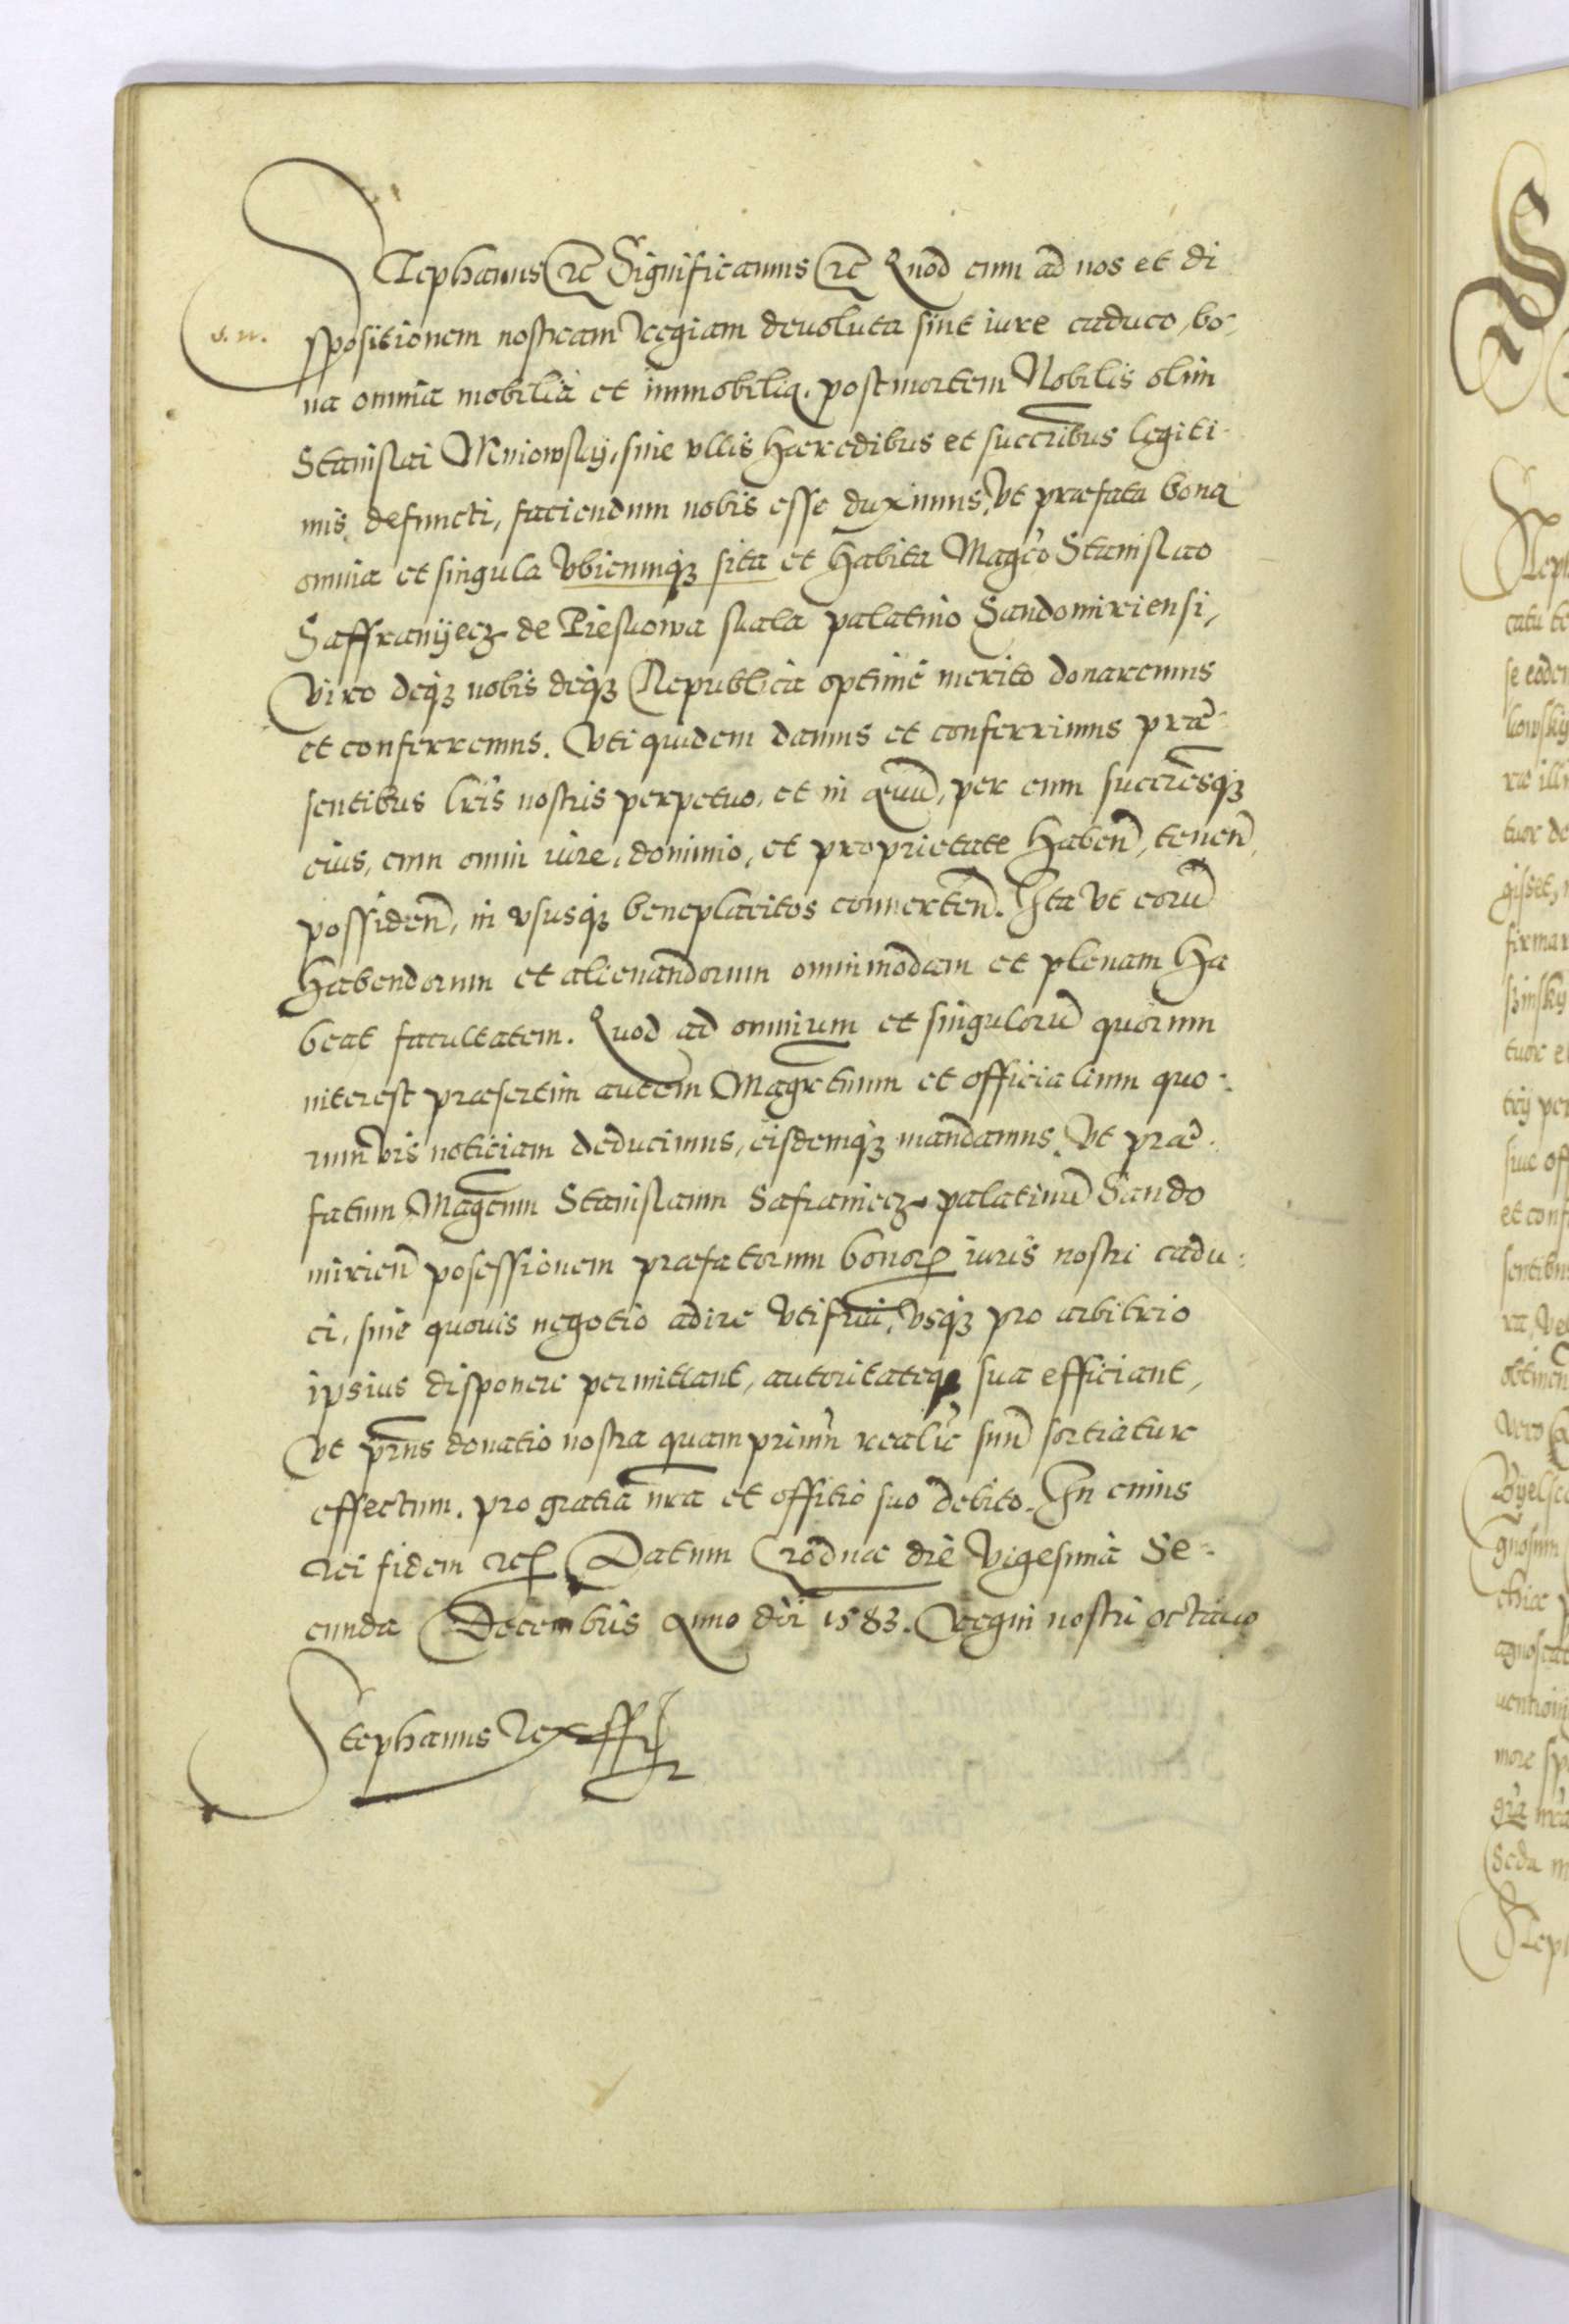 Stephanus etc Significamus etc Quod cum ad nos et di
spositionem nostram regiam devoluta sint iure caduco, bo-
na omnia mobilia et immobilia, post mortem Nobilis olim
Stanislai Mniowskij, sine ullis haeredibus et succribus legiti-
mis defuncti, faciendum nobis esse duximus, Ut praefata bona
omnia et singula ubicunque sita et habita Magco Stanislao
Saffranijecz de Pieskowa skala palatino Sandomiriensi,
Viro deque nobis deque Republica optimè merito donaremus
et conferremus. Uti quidem damus et conferrimus prae-
sentibus lris nostris perpetuo, et in aevum, per eum succresque
eius, cum omni iure, dominio, et proprietate haben, tenen,
possiden, in ususque beneplacitos converten. Ita ut eorum
habendorum et alienandorum omnimodam et plenam ha
beat facultatem. Quod ad omnium et singulorum quorum
interest praesertim autem Magrtuum et officialium quo-
rumvis noticiam deducimus, eisdemque mandamus, Ut prae-
fatum Magcum Stanislaum Safraniecz palatinum Sando
mirien posessionem praefatorum bonorum iuris nostri cadu-
ci, sine quovis negotio adire utifrui, usque pro arbitrio
ipsius disponere permittant, autoritateque sua efficiant,
Ut prns donatio nostra quam primum realr suum sortiatur
effectum. pro gratia nra et offitio suo debito. In cuius
rei fidem etc. Datum Grodnae die Vigesima Se-
cunda Decembris Anno dni 1583. Regni nostri octavo
Stephanus Rex